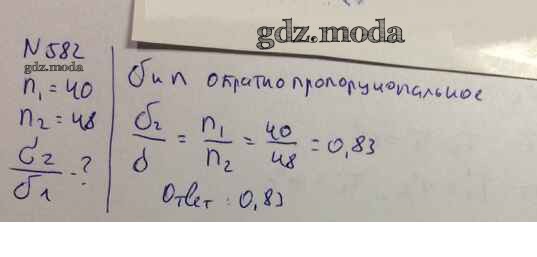 gdz.moda
N 582
gdz.moda
n₁ = 40
n₂ = 48
σ₂/σ₁ - ?
σ и n обратно пропорциональное
σ₂/σ = n₁/n₂ = 40/48 = 0,83
Ответ : 0,83